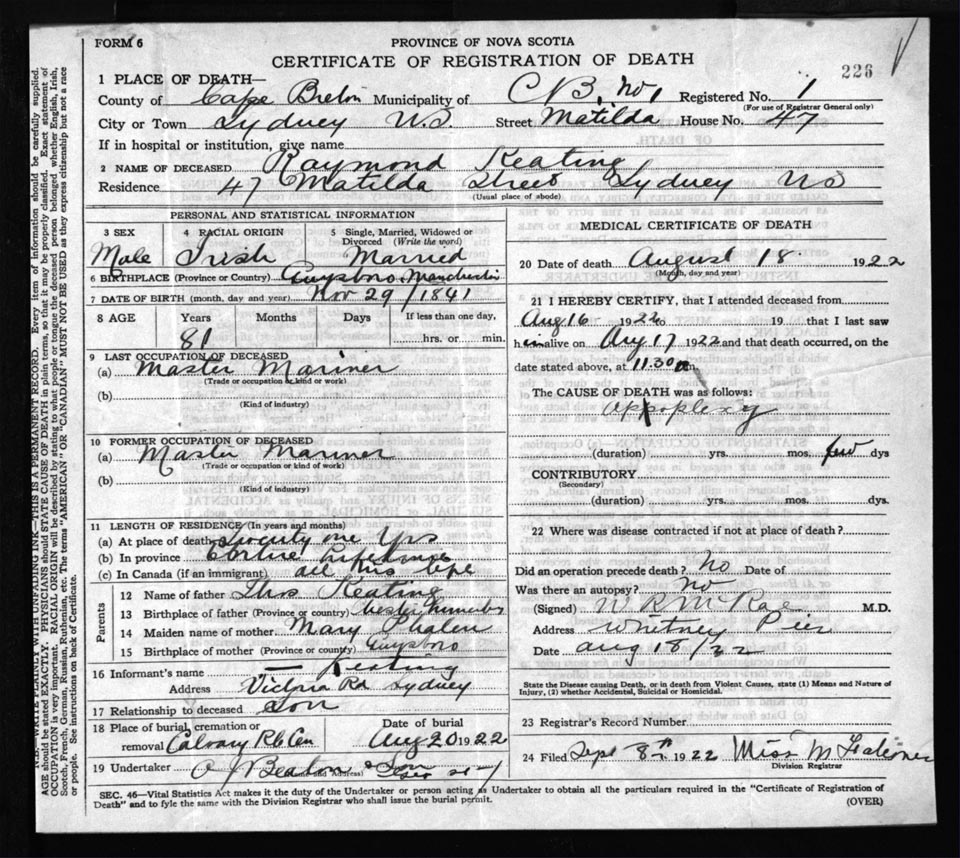 FORM 6
PROVINCE OF NOVA SCOTIA
CERTIFICATE OF REGISTRATION OF DEATH
226
1 PLACE OF DEATH—
County of Cape Breton Municipality of C.B. No 1 Registered No. 1
(For use of Registrar General only)
City or Town Sydney N.S. Street Matilda House No. 47
If in hospital or institution, give name
2 NAME OF DECEASED Raymond Keating
Residence 47 Matilda Street Sydney NS
(Usual place of abode)
PERSONAL AND STATISTICAL INFORMATION
3 SEX 4 RACIAL ORIGIN 5 Single, Married, Widowed or Divorced (Write the word)
Male Irish Married
6 BIRTHPLACE (Province or Country) Guysboro
7 DATE OF BIRTH (month, day and year) Nov 29/1841
8 AGE Years Months Days If less than one day,
81 hrs. or min.
9 LAST OCCUPATION OF DECEASED
(a) Master Mariner
(Trade or occupation or kind of work)
(b)
(Kind of industry)
10 FORMER OCCUPATION OF DECEASED
(a) Master Mariner
(Trade or occupation or kind of work)
(b)
(Kind of industry)
11 LENGTH OF RESIDENCE (In years and months)
(a) At place of death Twenty one Yrs
(b) In province
(c) In Canada (if an immigrant) all his life
Parents
12 Name of father Thos Keating
13 Birthplace of father (Province or country)
14 Maiden name of mother Mary Phalen
15 Birthplace of mother (Province or country) Guysboro
16 Informant's name — Keating
Address Victoria Rd Sydney
17 Relationship to deceased Son
18 Place of burial, cremation or removal Calvary R.C. Cem Date of burial Aug 20 1922
19 Undertaker A J Beaton & Son
(Name and Address)
MEDICAL CERTIFICATE OF DEATH
20 Date of death August 18 1922
(Month, day and year)
21 I HEREBY CERTIFY, that I attended deceased from
Aug 16 1922 to 19 that I last saw
him alive on Aug 17 1922 and that death occurred, on the
date stated above, at 11.30 a m.
The CAUSE OF DEATH was as follows:
Appoplexy
(duration) yrs. mos. few dys
CONTRIBUTORY
(Secondary)
(duration) yrs. mos. dys.
22 Where was disease contracted if not at place of death?
Did an operation precede death? No Date of
Was there an autopsy? No
(Signed) W R McRae M.D.
Address Whitney Pier
Date Aug 18/22
State the Disease causing Death, or in death from Violent Causes, state (1) Means and Nature of
Injury, (2) whether Accidental, Suicidal or Homicidal.
23 Registrar's Record Number
24 Filed Sept 8th 1922 Miss M
Division Registrar
SEC. 46—Vital Statistics Act makes it the duty of the Undertaker or person acting as Undertaker to obtain all the particulars required in the "Certificate of Registration of
Death" and to fyle the same with the Division Registrar who shall issue the burial permit.
(OVER)
N.B.—WRITE PLAINLY WITH UNFADING INK—THIS IS A PERMANENT RECORD. Every item of information should be carefully supplied.
AGE should be stated EXACTLY. PHYSICIANS should STATE CAUSE OF DEATH in plain terms, so that it may be properly classified. Exact statement of
OCCUPATION is very important. RACIAL ORIGIN will be described by stating to what people or tongue the deceased person belonged whether English, Irish,
Scotch, French, German, Russian, Ruthenian, etc. The terms "AMERICAN" OR "CANADIAN" MUST NOT BE USED as they express citizenship but not a race
or people. See instructions on back of Certificate.